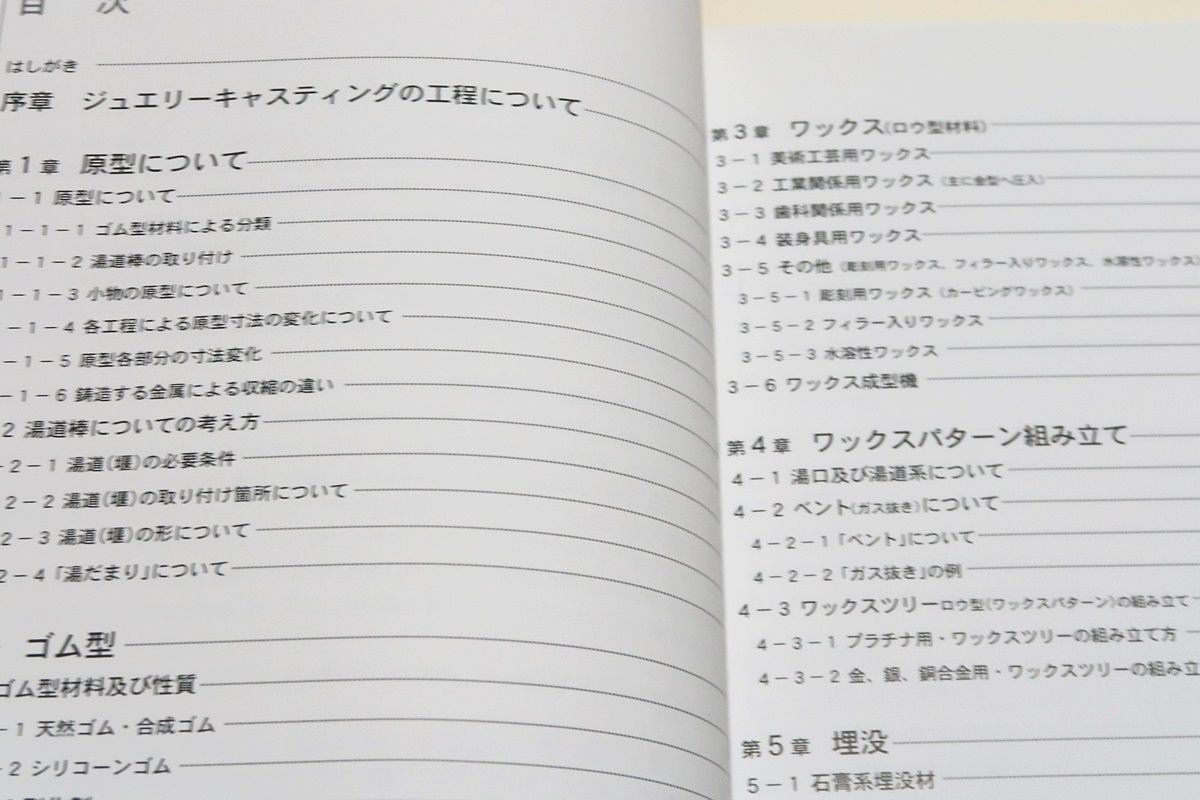 目 次
はしがき
序章 ジュエリーキャスティングの工程について
第1章 原型について
1－1 原型について
1－1－1 ゴム型材料による分類
1－1－2 湯道棒の取り付け
1－1－3 小物の原型について
－1－4 各工程による原型寸法の変化について
－1－5 原型各部分の寸法変化
－1－6 鋳造する金属による収縮の違い
2 湯道棒についての考え方
－2－1 湯道（堰）の必要条件
2－2 湯道（堰）の取り付け箇所について
2－3 湯道（堰）の形について
2－4 「湯だまり」について
ゴム型
ゴム型材料及び性質
－1 天然ゴム・合成ゴム
－2 シリコーンゴム
第3章 ワックス（ロウ型材料）
3－1 美術工芸用ワックス
3－2 工業関係用ワックス（主に金型へ圧入）
3－3 歯科関係用ワックス
3－4 装身具用ワックス
3－5 その他（彫刻用ワックス、フィラー入りワックス、水溶性ワックス）
3－5－1 彫刻用ワックス（カービングワックス）
3－5－2 フィラー入りワックス
3－5－3 水溶性ワックス
3－6 ワックス成型機
第4章 ワックスパターン組み立て
4－1 湯口及び湯道系について
4－2 ベント（ガス抜き）について
4－2－1 「ベント」について
4－2－2 「ガス抜き」の例
4－3 ワックスツリーロウ型（ワックスパターン）の組み立て
4－3－1 プラチナ用・ワックスツリーの組み立て方
4－3－2 金、銀、銅合金用・ワックスツリーの組み立
第5章 埋没
5－1 石膏系埋没材